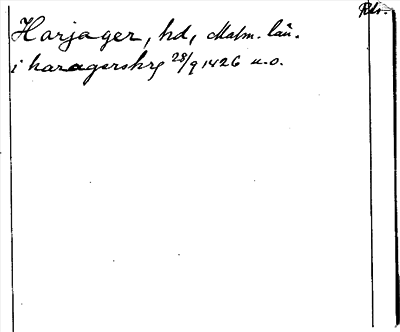 Rds.
Harjager, hd, Malm. län.
i haragershr 28/9 1426 u.o.